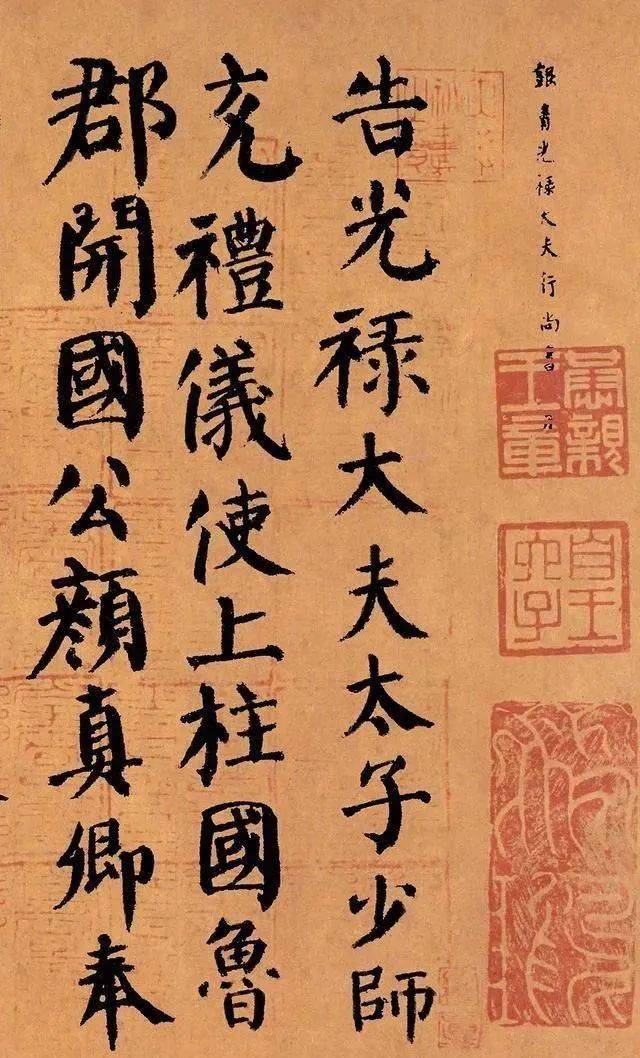 銀青光禄大夫行尚書
肅親王章
皇六子
告光禄大夫太子少師
充禮儀使上柱國魯
郡開國公顏真卿奉